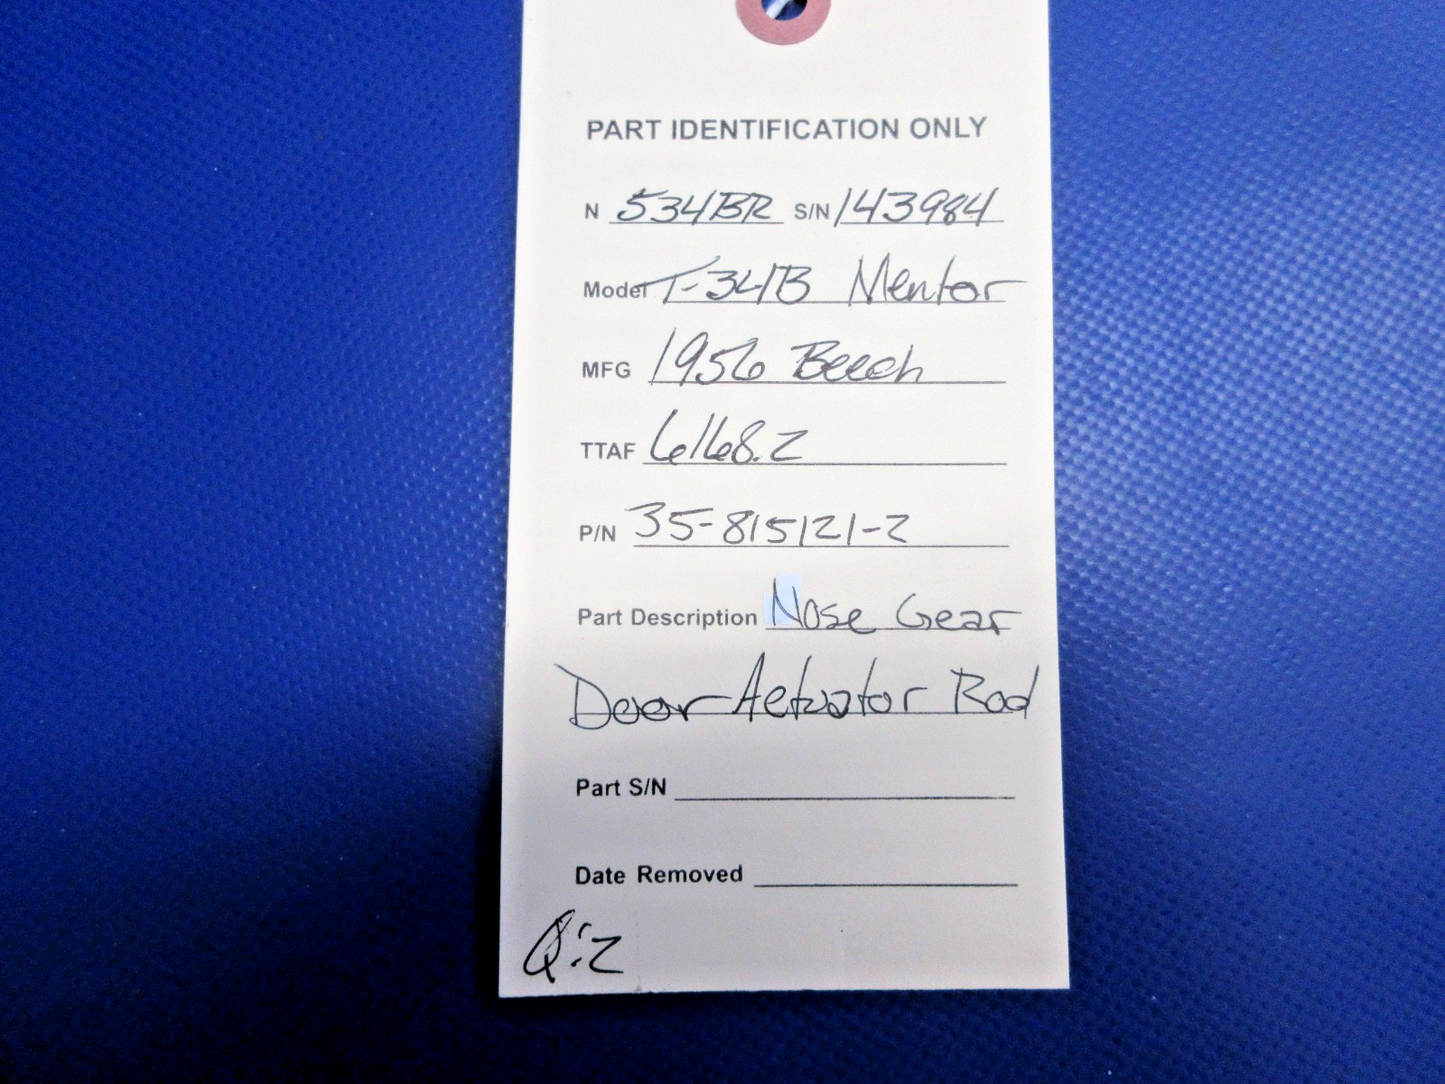 PART IDENTIFICATION ONLY
N 534BR S/N 143984
Model T-34B Mentor
MFG 1956 Beech
TTAF 6168.2
P/N 35-815121-2
Part Description Nose Gear
Door Actuator Rod
Part S/N
Date Removed
Q:2